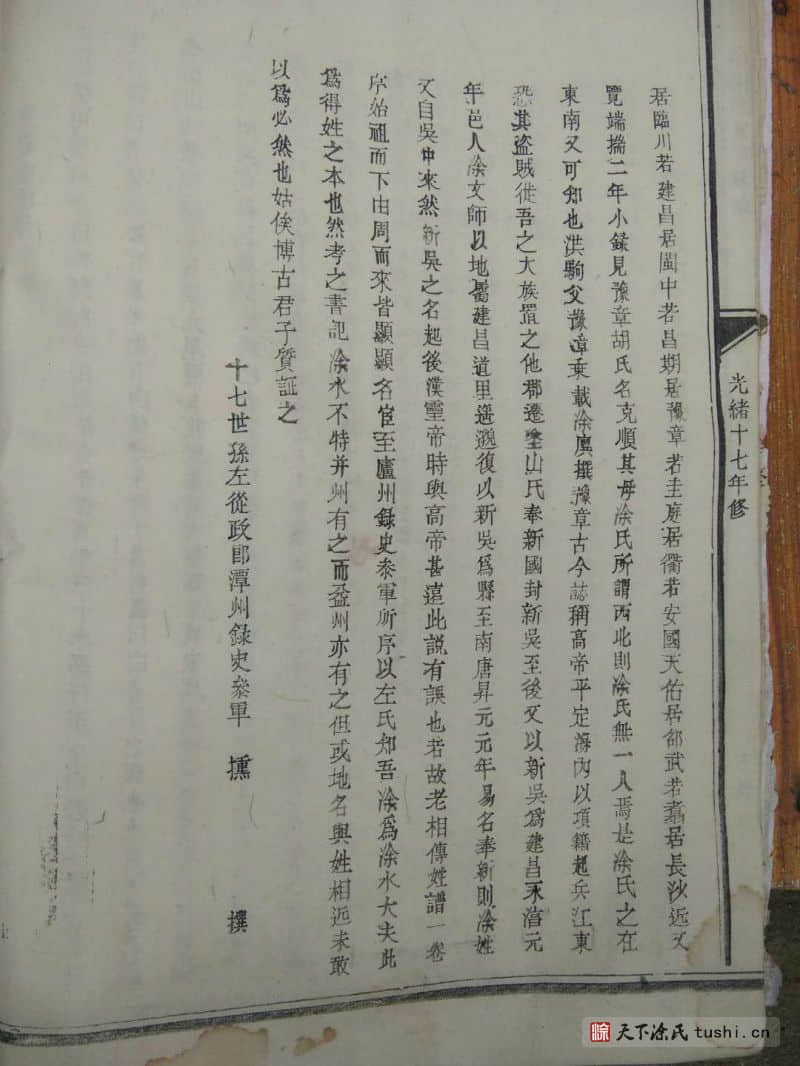 光緒十七年修
居臨川若建昌居閩中若昌期居豫章若圭庭居衢若安國天佑居邵武若翥居長沙近又
覽端揣二年小錄見豫章胡氏名克順其母涂氏所謂西北則涂氏無一人焉是涂氏之在
東南又可知也洪駒父豫章乗載涂廙撰豫章古今誌稱高帝平定海內以項籍起兵江東
恐其盜賊徙吾之大族置之他郡遷塗山氏奉新國封新吳至後又以新吳為建昌永淯元
年邑人涂文師以地屬建昌道里遥邈復以新吳為縣至南唐昇元元年易名奉新則涂姓
又自吳中來然新吳之名起後漢靈帝時與高帝甚遠此説有誤也若故老相傳姓譜一卷
序始祖而下由周而來皆顯顯名宦至廬州錄史叅軍所序以左氏知吾涂為涂水大夫此
為得姓之本也然考之書記涂水不特并州有之而益州亦有之但或地名與姓相近未敢
以為必然也姑俟博古君子質証之
十七世孫左從政郎潭州錄史叅軍 壎 撰
涂 天下涂氏 tushi.cn